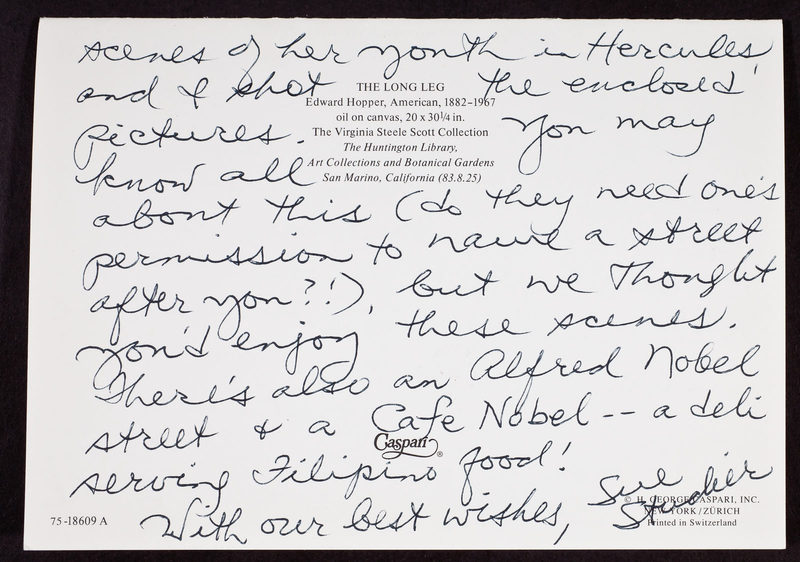 scenes of her youth in Hercules,
and I shot the enclosed
THE LONG LEG
Edward Hopper, American, 1882–1967
oil on canvas, 20 x 30¼ in.
pictures. You may
The Virginia Steele Scott Collection
The Huntington Library,
Art Collections and Botanical Gardens
know all
San Marino, California (83.8.25)
about this (do they need one's
permission to name a street
after you?!), but we thought
you'd enjoy these scenes.
There's also an Alfred Nobel
street & a Cafe Nobel -- a deli
Caspari®
serving Filipino food!
With our best wishes,
Sue
© H. GEORGE CASPARI, INC.
NEW YORK / ZÜRICH
Printed in Switzerland
75-18609 A